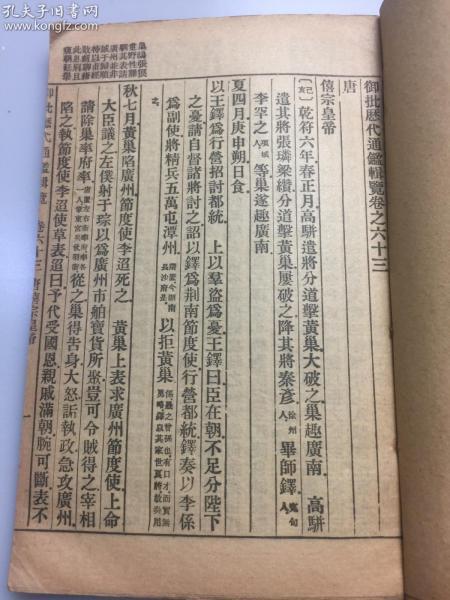 孔夫子旧书网
御批歷代通鑑輯覽卷之六十三
唐
僖宗皇帝
己亥乾符六年春正月高駢遣將分道擊黃巢大破之巢趣廣南 高駢
遣其將張璘梁纘分道擊黃巢屢破之降其將秦彥徐州人畢師鐸冤句人
李罕之項城人等巢遂趣廣南
夏四月庚申朔日食
以王鐸爲行營招討都統 上以羣盜爲憂王鐸曰臣在朝不足分陛下
之憂請自督諸將討之詔以鐸爲荆南節度使行營都統鐸奏以李係
爲副使將精兵五萬屯潭州 長沙府是 以拒黃巢
秋七月黃巢陷廣州節度使李迢死之 黃巢上表求廣州節度使上命
大臣議之左僕射于琮以爲廣州市舶寶貨所聚豈可令賊得之宰相
請除巢率府率 從之巢得告身大怒詬執政急攻廣州
陷之執節度使李迢使草表迢曰予代受國恩親戚滿朝腕可斷表不
御批歷代通鑑輯覽 卷六十三 唐僖宗皇帝 一